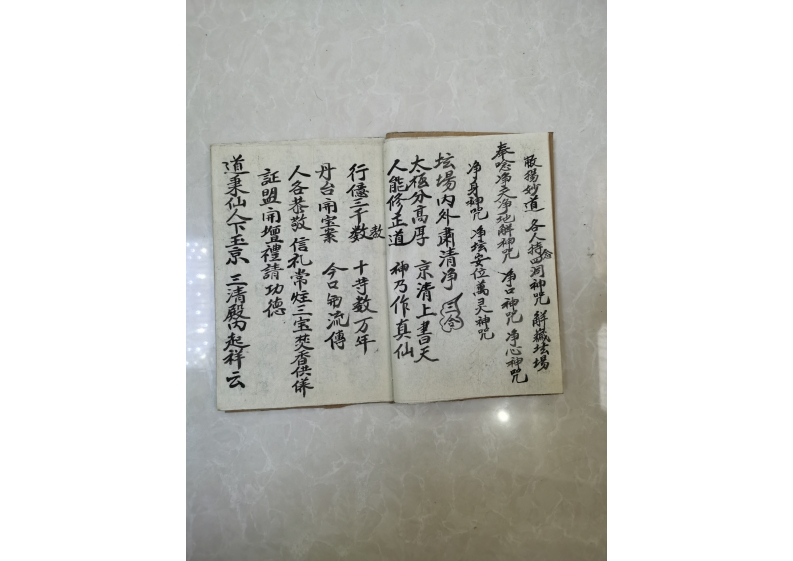 敢揚妙道 各人持念四洞神咒 解穢坛場
奉唸净天净地解神咒 净口神咒 净心神咒
净身神咒 净坛安位萬灵神咒
坛場内外肅清净
太極分高厚 京清上書天
人能修正道 神乃作真仙
行億三千數 十芽数万年
丹台開宝案 今口流傳
人各恭敬 信礼常炷三宝焚香供养
証盟開壇禮請功德
道秉仙人下玉京 三清殿内起祥云